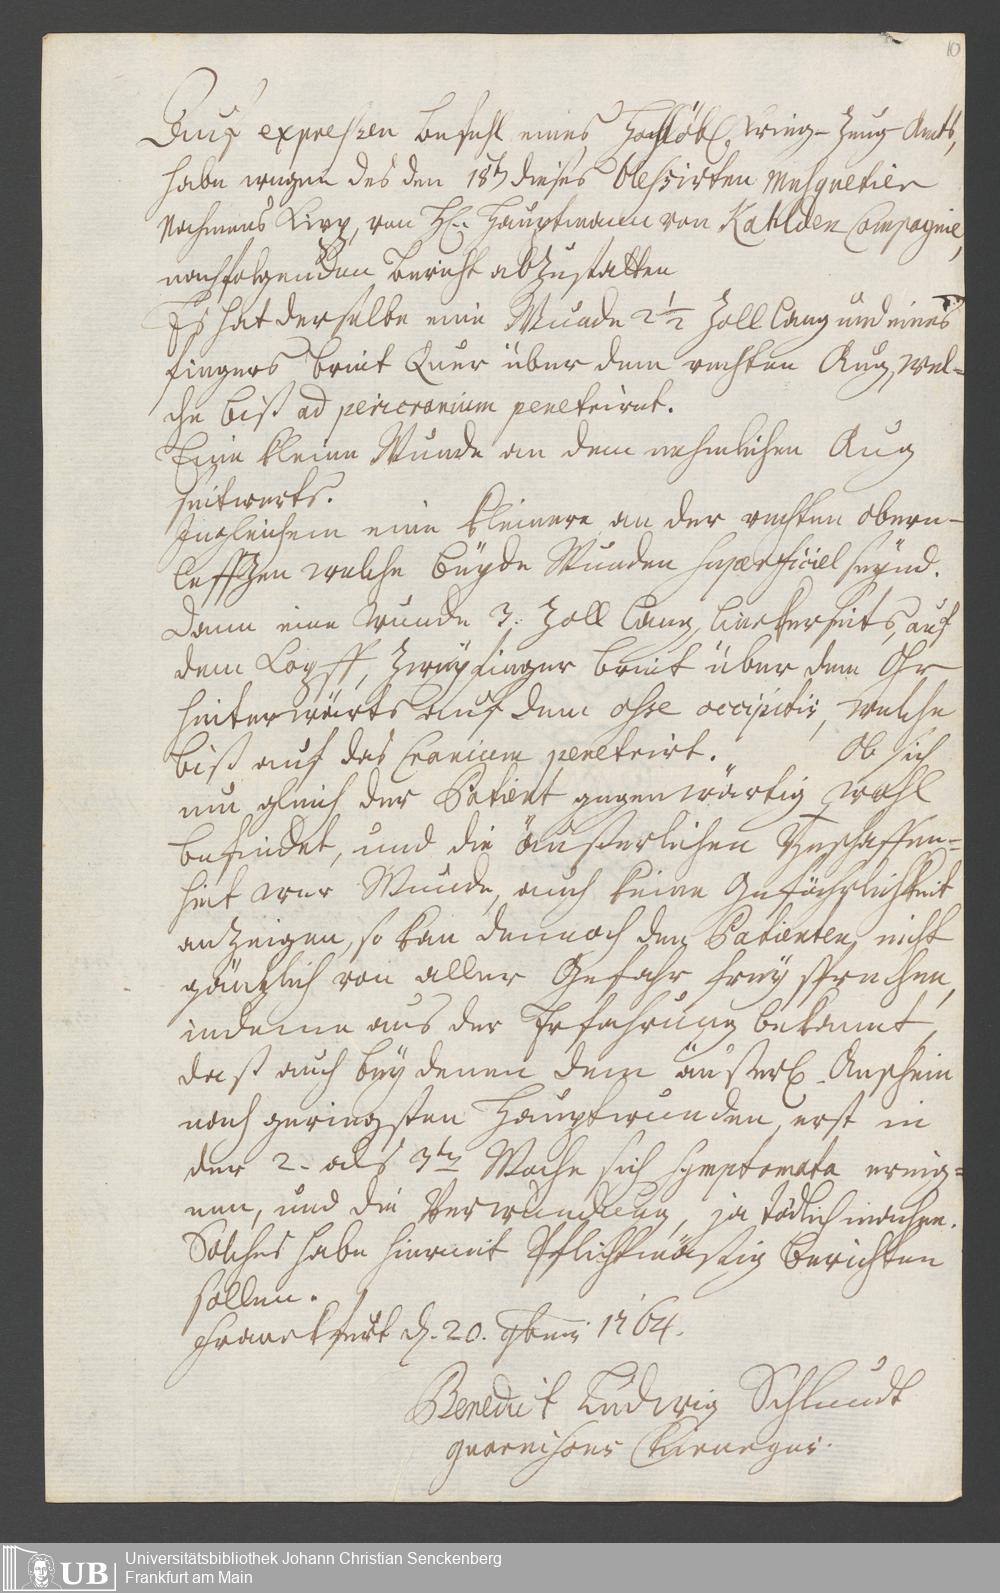 10
Auf expressen Befehl eines Hochlöbl. Krieg-Zeug Amts,
habe wegen des den 18t dieses blessirten Musquetier
Nahmens Lipp, von H. Hauptmann von Kahlden Compagnie,
nachfolgenden Bericht abzustatten
Es hat derselbe eine Wunde 2 1/2 Zoll lang und eines
fingers breit Quer über dem rechten Aug, wel-
che biß ad pericranium penetriret.
Eine kleine Wunde an dem nehmlichen Aug
seitwerts.
Ingleichem eine kleinere an der rechten obern-
leffzen welche beyde Wunden superficiel seynd.
Dann eine Wunde 3. Zoll lang, linckerseits, auf
dem Kopff, zweyfinger breit über dem Ohr
hinterwärts auf dem osse occipitis, welche
biß auf das Cranium penetrirt. Ob sich
nun gleich der Patient gegenwärtig wohl
befindet, und die äußerlichen Beschaffen-
heit der Wunde, auch keine Gefährlichkeit
anzeigen, so kan dennoch den Patienten nicht
gäntzlich von aller Gefahr frey sprechen,
indeme aus der Erfahrung bekannt,
daß auch bey denen dem äußerl. Anschein
nach geringsten Hauptwunden, erst in
der 2- als 3ten Woche sich symptomata ereig-
nen, und die Verwundung, ja tödlich machen.
Solches habe hiermit Pflichtmäßig berichten
sollen.
Franckfurt d. 20. 1764.
Benedict Ludwig Schlundt
guarnisons Chirurgus.
UB
Universitätsbibliothek Johann Christian Senckenberg
Frankfurt am Main